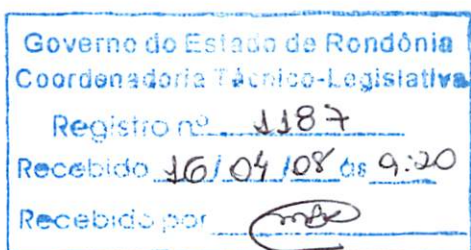 Governo do Estado de Rondônia
Coordenadoria Técnico-Legislativa
Registro nº 1187
Recebido 16/04/08 às 9:20
Recebido por